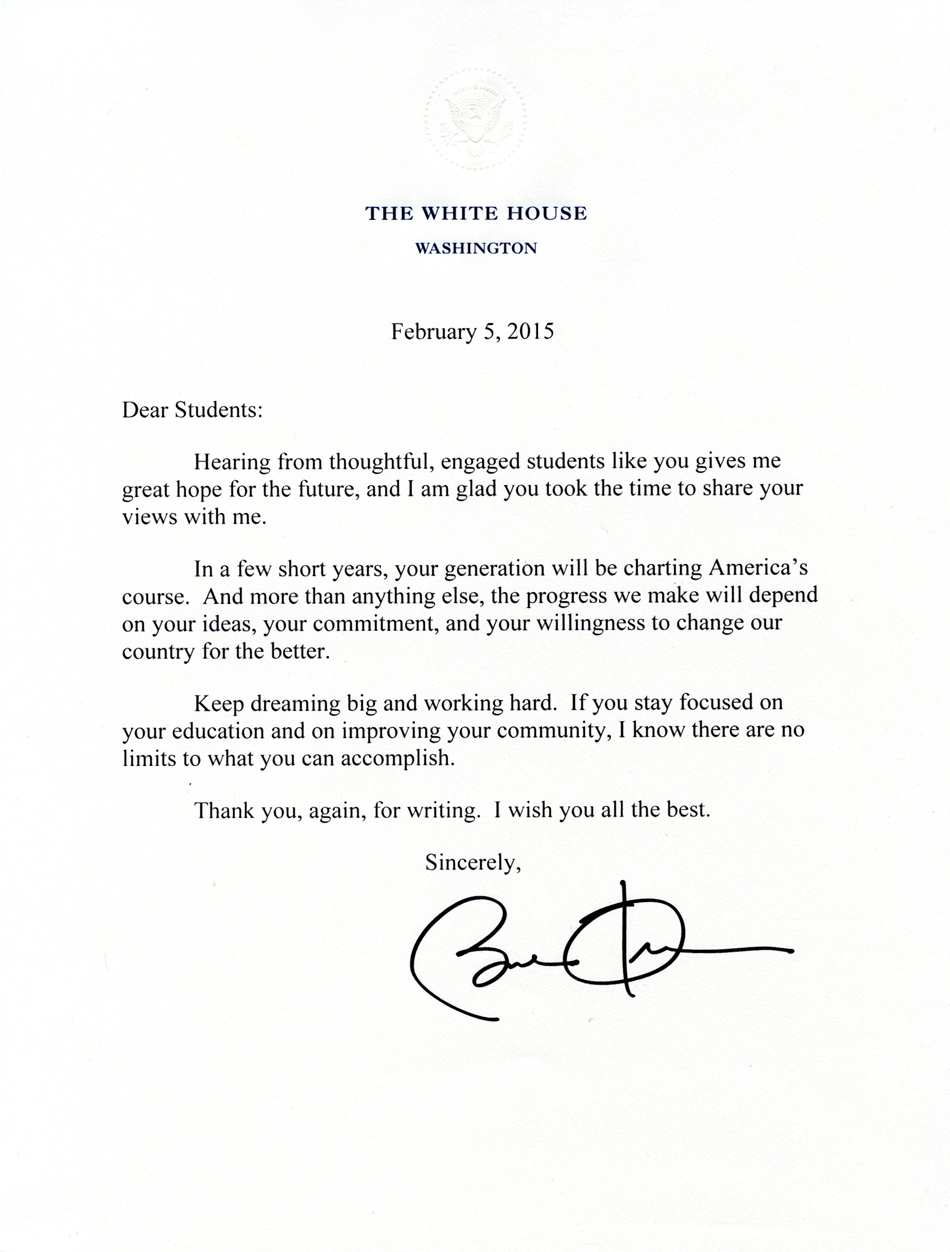 THE WHITE HOUSE
WASHINGTON
February 5, 2015
Dear Students:
Hearing from thoughtful, engaged students like you gives me
great hope for the future, and I am glad you took the time to share your
views with me.
In a few short years, your generation will be charting America's
course.  And more than anything else, the progress we make will depend
on your ideas, your commitment, and your willingness to change our
country for the better.
Keep dreaming big and working hard.  If you stay focused on
your education and on improving your community, I know there are no
limits to what you can accomplish.
Thank you, again, for writing.  I wish you all the best.
Sincerely,